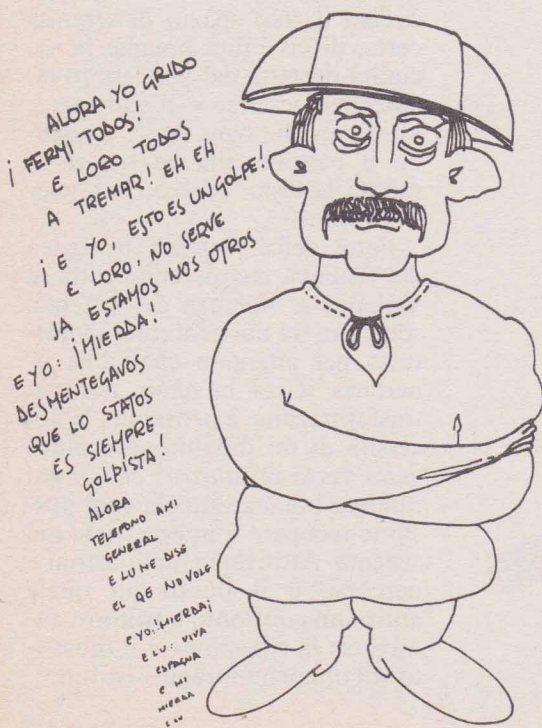 ALORA YO GRIDO
¡FERMI TODOS!
E LORO TODOS
A TREMAR! EH EH
¡E YO, ESTO ES UN GOLPE!
E LORO, NO SERVE
JA ESTAMOS NOS OTROS
E YO: ¡MIERDA!
DESMENTEGAVOS
QUE LO STATOS
ES SIEMPRE
GOLPISTA!
ALORA
TELEFONO AMI
GENERAL
E LU ME DISE
EL QE NO VOLE
E YO, ¡MIERDA¡
E LU: VIVA
ESPAGNA
E MI
MIERDA
E LU